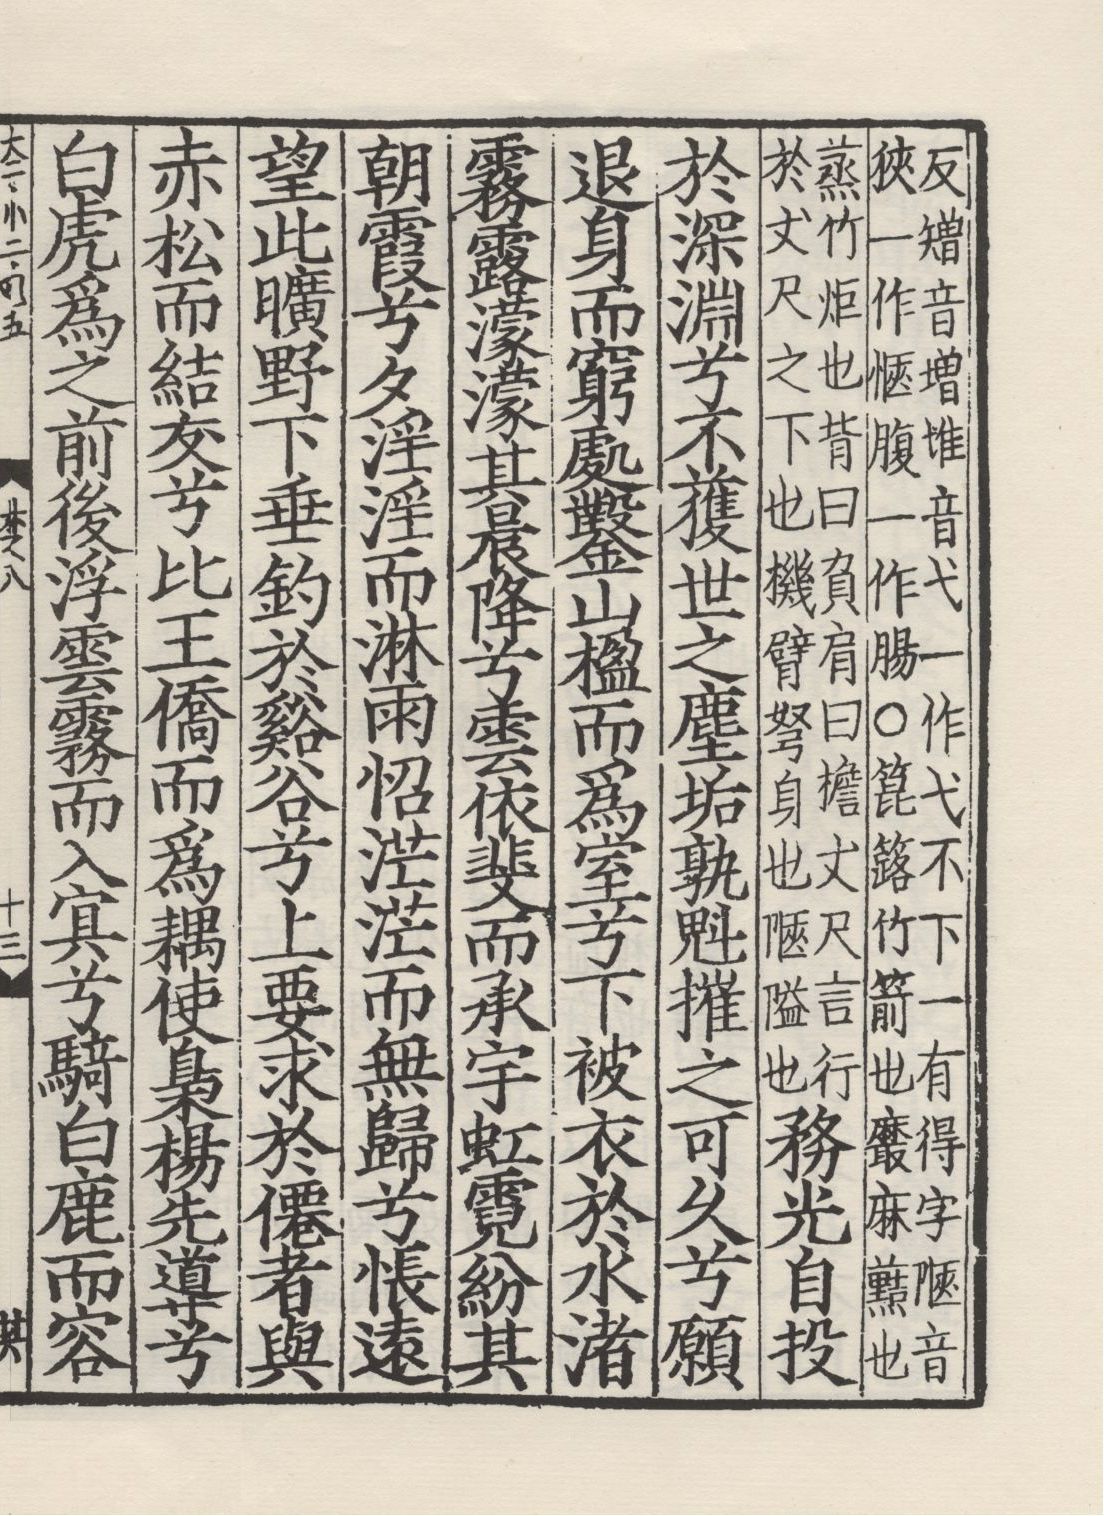 反矰音增堆音弋一作弋不下一有得字陿音
狹一作愜腹一作腸○箟簬竹箭也黀麻蘸也
蒸竹炬也背曰負肩曰擔丈尺言行
於丈尺之下也機臂弩身也陿隘也務光自投
於深淵兮不獲世之塵垢孰魁摧之可久兮願
退身而窮處鑿山楹而爲室兮下被衣於水渚
霧露濛濛其晨降兮雲依斐而承宇虹霓紛其
朝霞兮夕淫淫而淋雨怊茫茫而無歸兮悵遠
望此曠野下垂釣於谿谷兮上要求於僊者與
赤松而結友兮比王僑而爲耦使梟楊先導兮
白虎爲之前後浮雲霧而入冥兮騎白鹿而容
十三